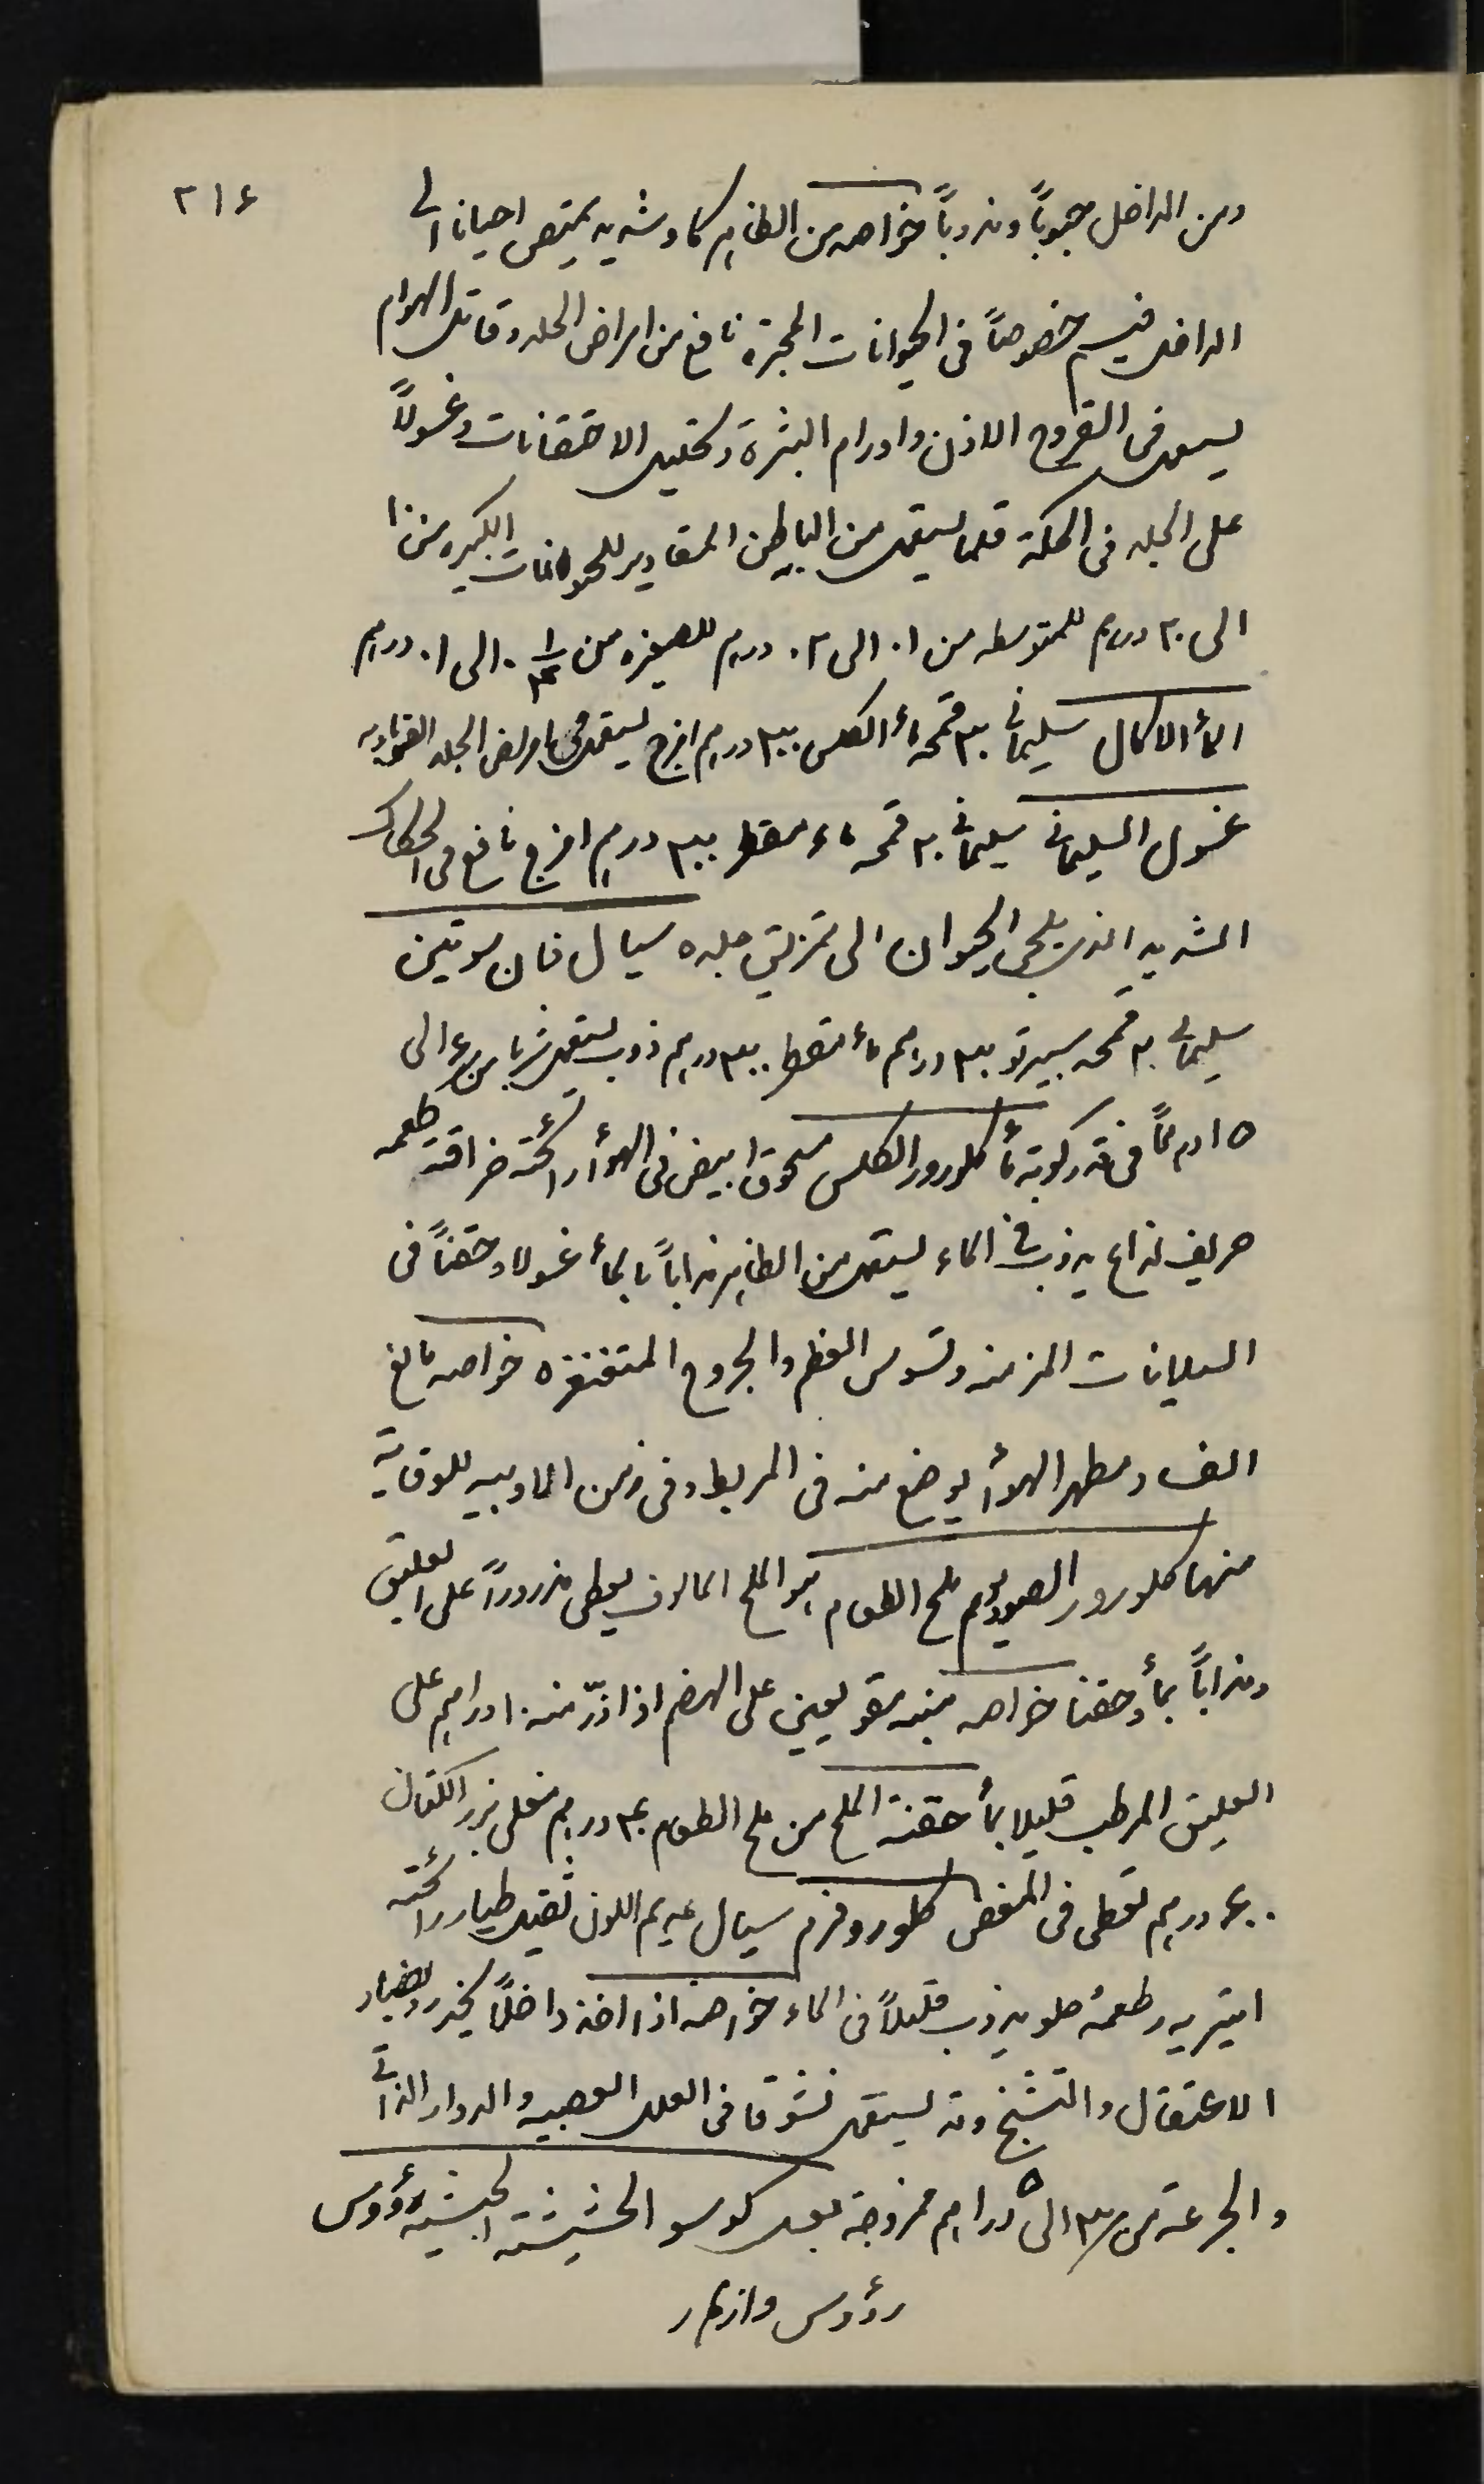 ٢١٤
ومن الداخل حبوباً ومذوباً خواصه من الظاهر كاو شديد يمتص احيانا الى
الداخل فيسم خصوصاً فى الحيوانات المجترة نافع من امراض الجلد وقاتل الهوام
يستعمل فى القروح الاذن واورام البثرة وتحليل الاحتقانات وغسولاً
على الجلد فى الحكة قلما يستعمل من الباطن المقادير للحيوانات الكبيره من ١
الى ٢٠ درهم للمتوسطه من ١٠ الى ٢٠ درهم للصغيره من الى ١٠ درهم
المأ الاكال سليمانى ٢٠ قمحه ماء الكلس ٣٠٠ درهم امزج يستعمل فى امراض الجلد القوباويه
غسول السليمانى سليمانى ٢٠ قمحه ماء مقطر ٣٠٠ درهم امزج نافع فى الحكاك
الشديد الذى يلجى الحيوان الى تمزيق جلده سيال فان سويتين
سليمانى ٢٠ قمحه سبيرتو ٣٠ درهم ماء مقطر ٣٠٠ درهم ذوب يستعمل شربا من ٤ الى
١٥ درهماً فى مأ كلورور الكلس مسحوق ابيض فى الهوأ رائحته خراقة طعمه
حريف لذاع يذوب فى الماء يستعمل من الظاهر مذاباً بالمأ غسولا وحقناً فى
السيلانات المزمنه وتسوس العظم والجروح المتغنغره خواصه مانع
الفساد ومطهر الهوأ يوضع منه فى المربط وفى زمن الماوبيه للوقاية
منها كلورور الصوديوم ملح الطعام هو الملح المالوف يعطى مذروراً على العليق
ومذاباً بمأ وحقنا خواصه منبه مقو يعين على الهضم اذا ذرّ منه ١٠ دراهم على
العليق المرطب قليلا بمأ حقنة الملح من ملح الطعام ٤٠ درهم مغلى بزر الكتان
٤٠٠ درهم تعطى فى المغص كلوروفرم سيال عديم اللون ثقيل طيار رائحته
ايتيريه وطعمه حلو يذوب قليلاً فى الماء خواصه اذا اخذ داخلاً يخدر ويضاد
الاعتقال والتشنج وقد يستعمل نشوقا فى العلل العصبيه والدوار الذاتى
والجرعة من ٣ الى ٥ دراهم ممزوجة بعسل كوسو الحشيشة الحبشية رؤوس
رؤوس وازهار